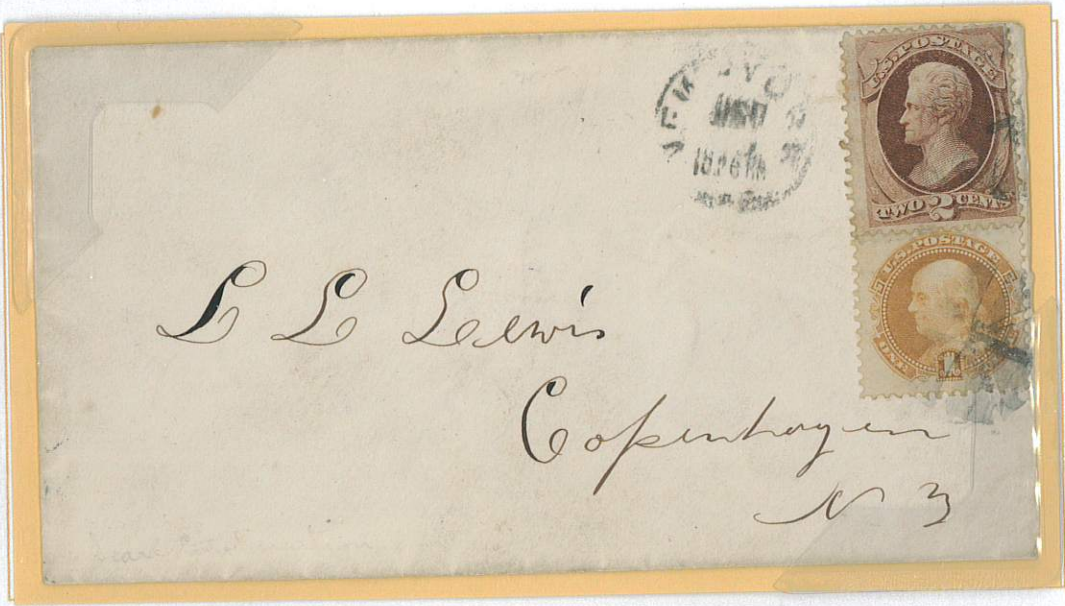 NEW YORK
U.S. POSTAGE
TWO 2 CENTS
U.S. POSTAGE
ONE 1
L L Lewis
Copenhagen
N Y